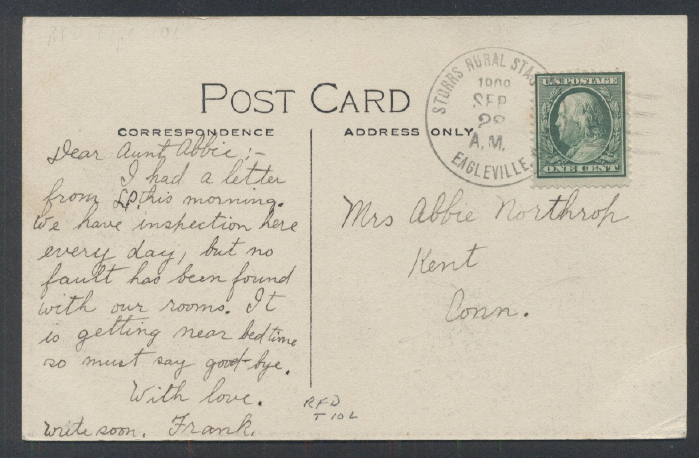 POST CARD
CORRESPONDENCE
Dear Aunt Abbie;-
I had a letter
from this morning.
We have inspection here
every day, but no
fault has been found
with our rooms. It
is getting near bedtime
so must say good-bye.
With love.
write soon. Frank.
ADDRESS ONLY
STORRS RURAL STA
1909
SEP
A.M.
EAGLEVILLE,
U.S. POSTAGE
ONE CENT
Mrs Abbie Northrop
Kent
Conn.
RFD
T 10 L